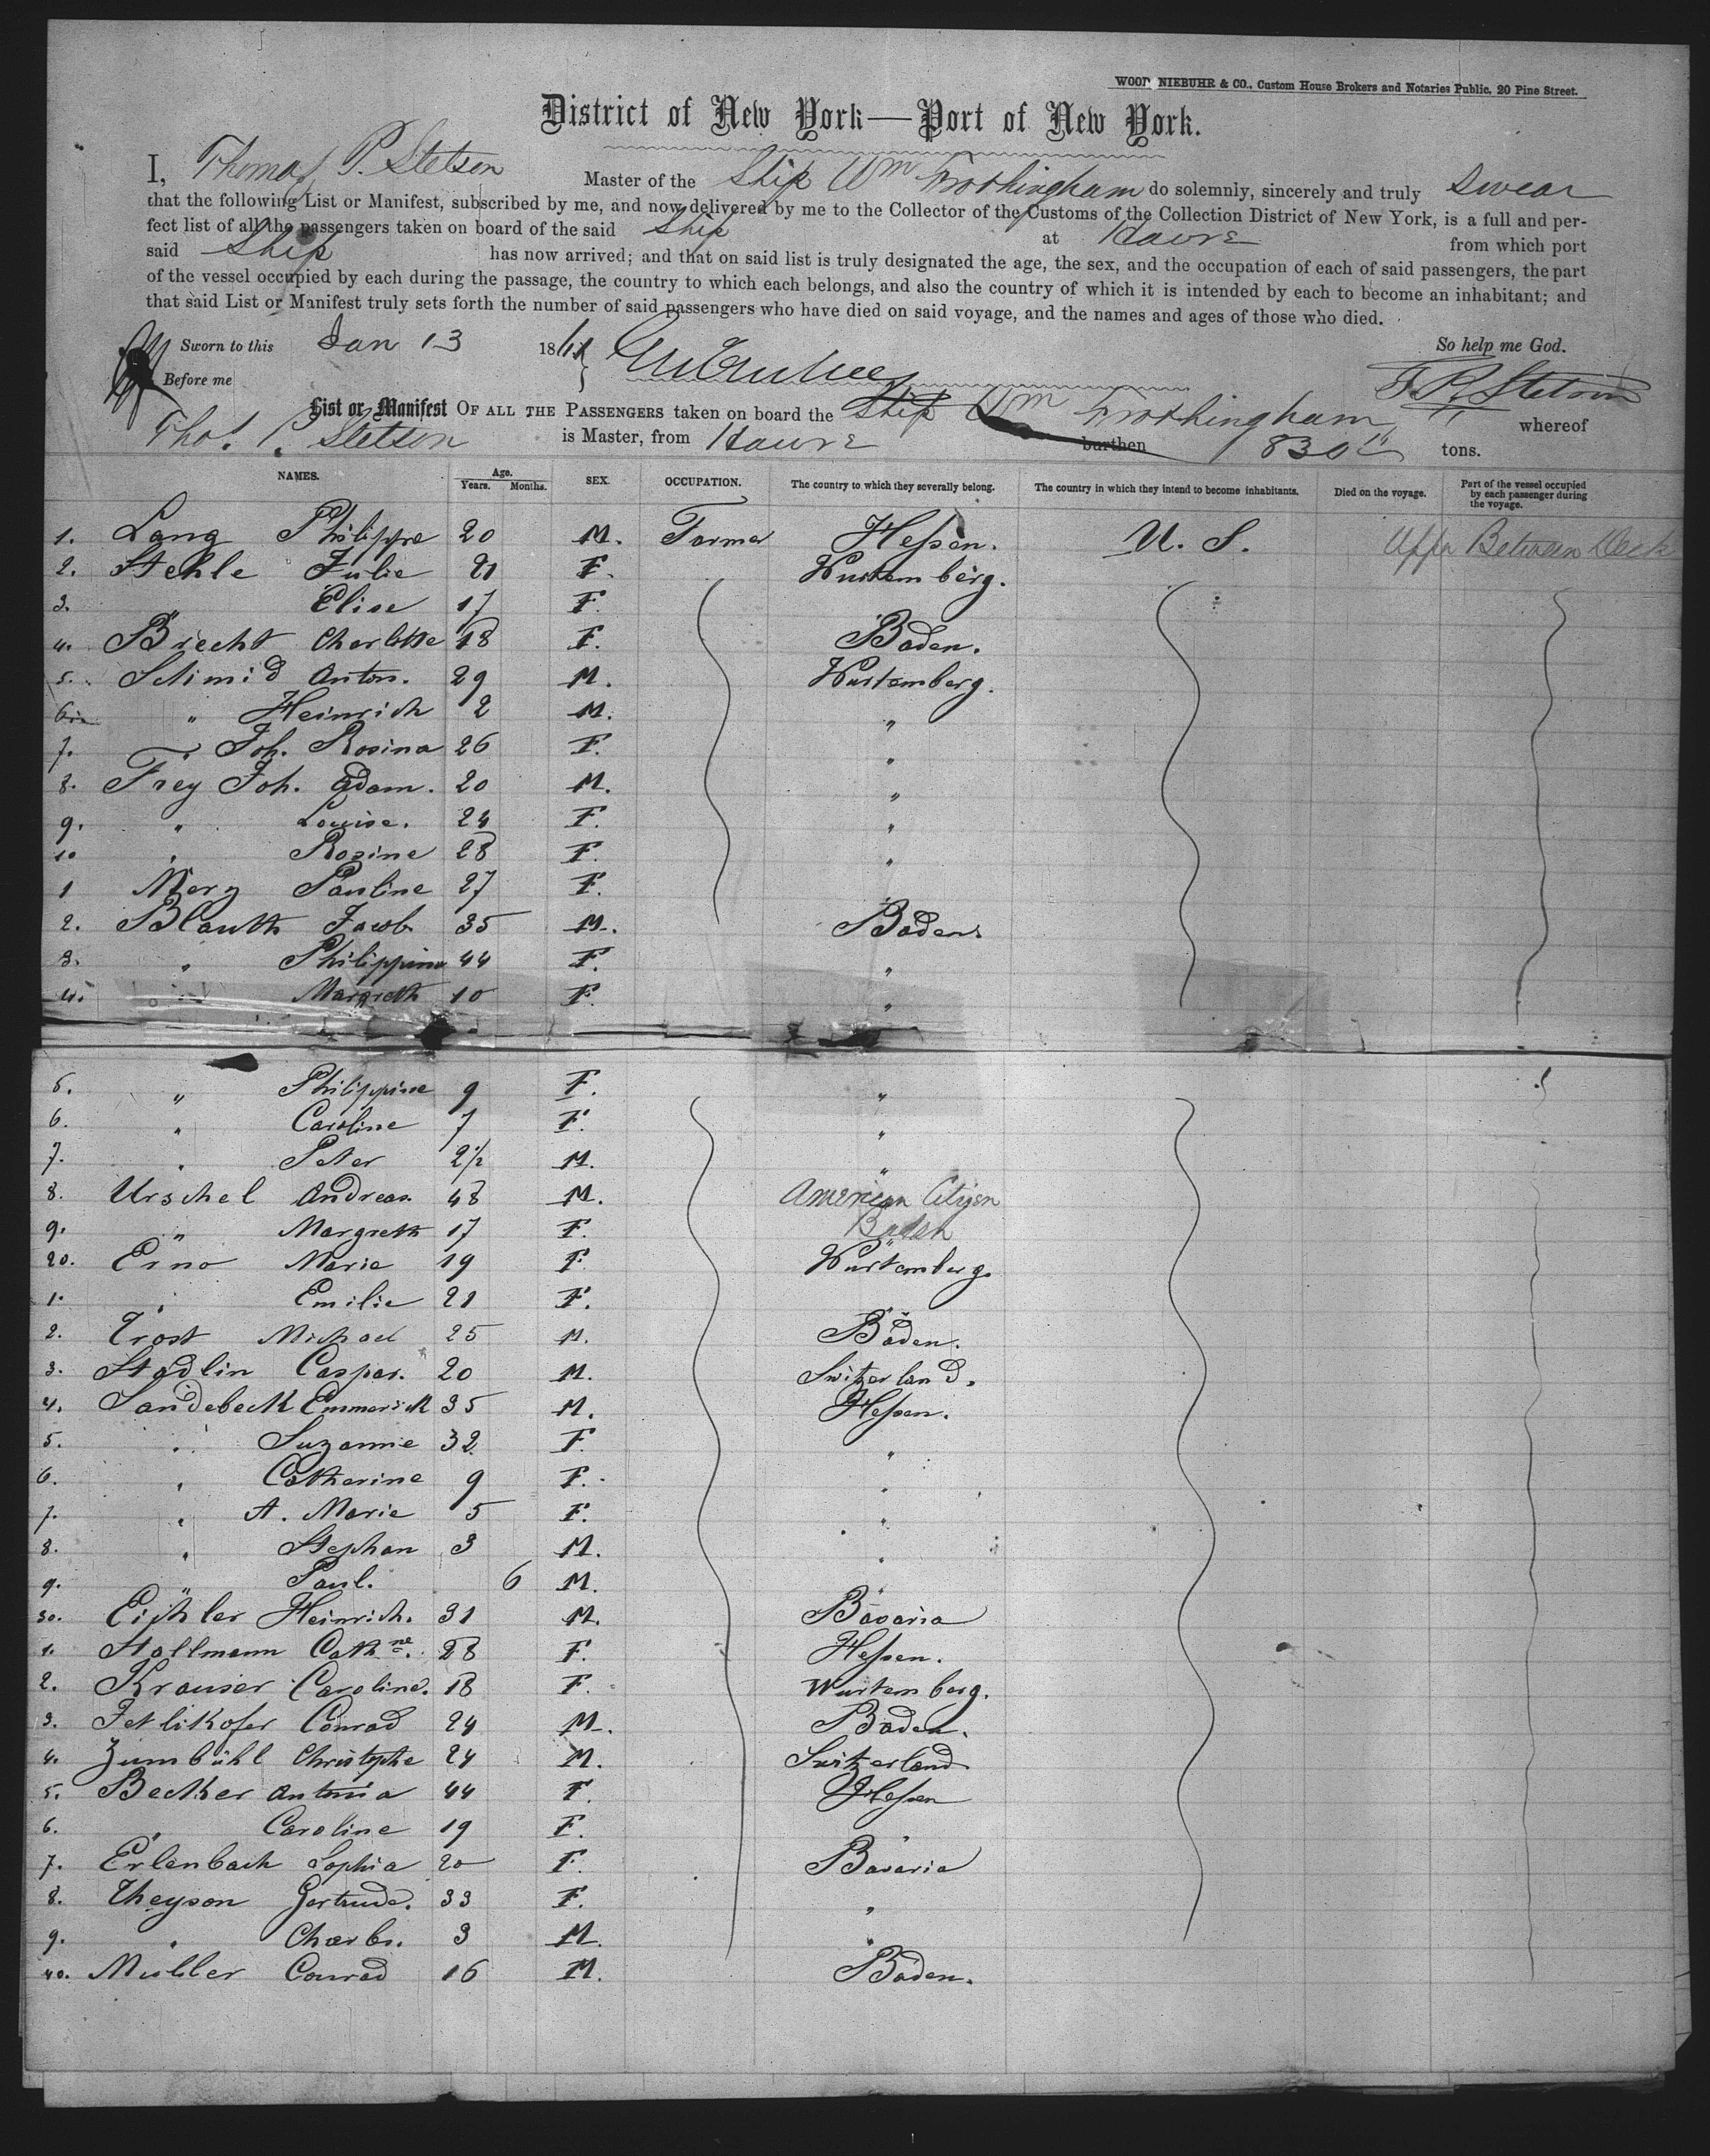 WOOD, NIEBUHR & CO., Custom House Brokers and Notaries Public, 20 Pine Street.
District of New York—Port of New York.
I, Thomas P. Stetson Master of the Ship Wm Frothingham do solemnly, sincerely and truly swear
that the following List or Manifest, subscribed by me, and now delivered by me to the Collector of the Customs of the Collection District of New York, is a full and per-
fect list of all the passengers taken on board of the said Ship at Havre from which port
said Ship has now arrived; and that on said list is truly designated the age, the sex, and the occupation of each of said passengers, the part
of the vessel occupied by each during the passage, the country to which each belongs, and also the country of which it is intended by each to become an inhabitant; and
that said List or Manifest truly sets forth the number of said passengers who have died on said voyage, and the names and ages of those who died.
Sworn to this Jan 13 186 So help me God.
Before me T. P. Stetson
List or Manifest OF ALL THE PASSENGERS taken on board the Ship Wm Frothingham whereof
Thos. P. Stetson is Master, from Havre burthen 830 tons.
NAMES. Age. Years. Months. SEX. OCCUPATION. The country to which they severally belong. The country in which they intend to become inhabitants. Died on the voyage. Part of the vessel occupied by each passenger during the voyage.
1. Lang Philippe 20 M. Farmer Hessen. U. S. Upper Between Deck
2. Stehle Julie 21 F. Wurtemberg.
3. " Elise 17 F.
4. Brecht Charlotte 18 F. Baden.
5. Schmid Anton. 29 M. Wurtemberg.
6. " Heinrich 2 M. "
7. " Joh. Rosina 26 F. "
8. Frey Joh. Adam. 20 M. "
9. " Louise. 24 F. "
10 " Rosine 28 F. "
1 Merz Pauline 27 F.
2. Blauth Jacob 35 M. Baden.
3. " Philippine 44 F. "
4. " Margreth 10 F. "
5. " Philippine 9 F. "
6. " Caroline 7 F. "
7. " Peter 2½ M. "
8. Urschel Andreas. 48 M. American Citizen
9. " Margreth 17 F. Baden
20. Erno Marie 19 F. Wurtemberg.
1. " Emilie 21 F. "
2. Trost Michael 25 M. Baden.
3. Stadlin Caspar. 20 M. Switzerland.
4. Sandebeck Emmerick 35 M. Hessen.
5. " Suzanne 32 F. "
6. " Catherine 9 F. "
7. " A. Marie 5 F. "
8. " Stephan 3 M. "
9. " Paul. 6 M. "
30. Eichler Heinrich. 31 M. Bavaria
1. Stallmann Cathne. 28 F. Hessen.
2. Krauser Caroline. 18 F. Wurtemberg.
3. Jetlikofer Conrad 24 M. Baden.
4. Zumbühl Christophe 24 M. Switzerland
5. Becker Antonia 44 F. Hessen
6. " Caroline 19 F. "
7. Erlenbach Sophia 20 F. Bavaria
8. Theyson Gertrude. 33 F. "
9. " Charles. 3 M. "
40. Muhler Conrad 16 M. Baden.